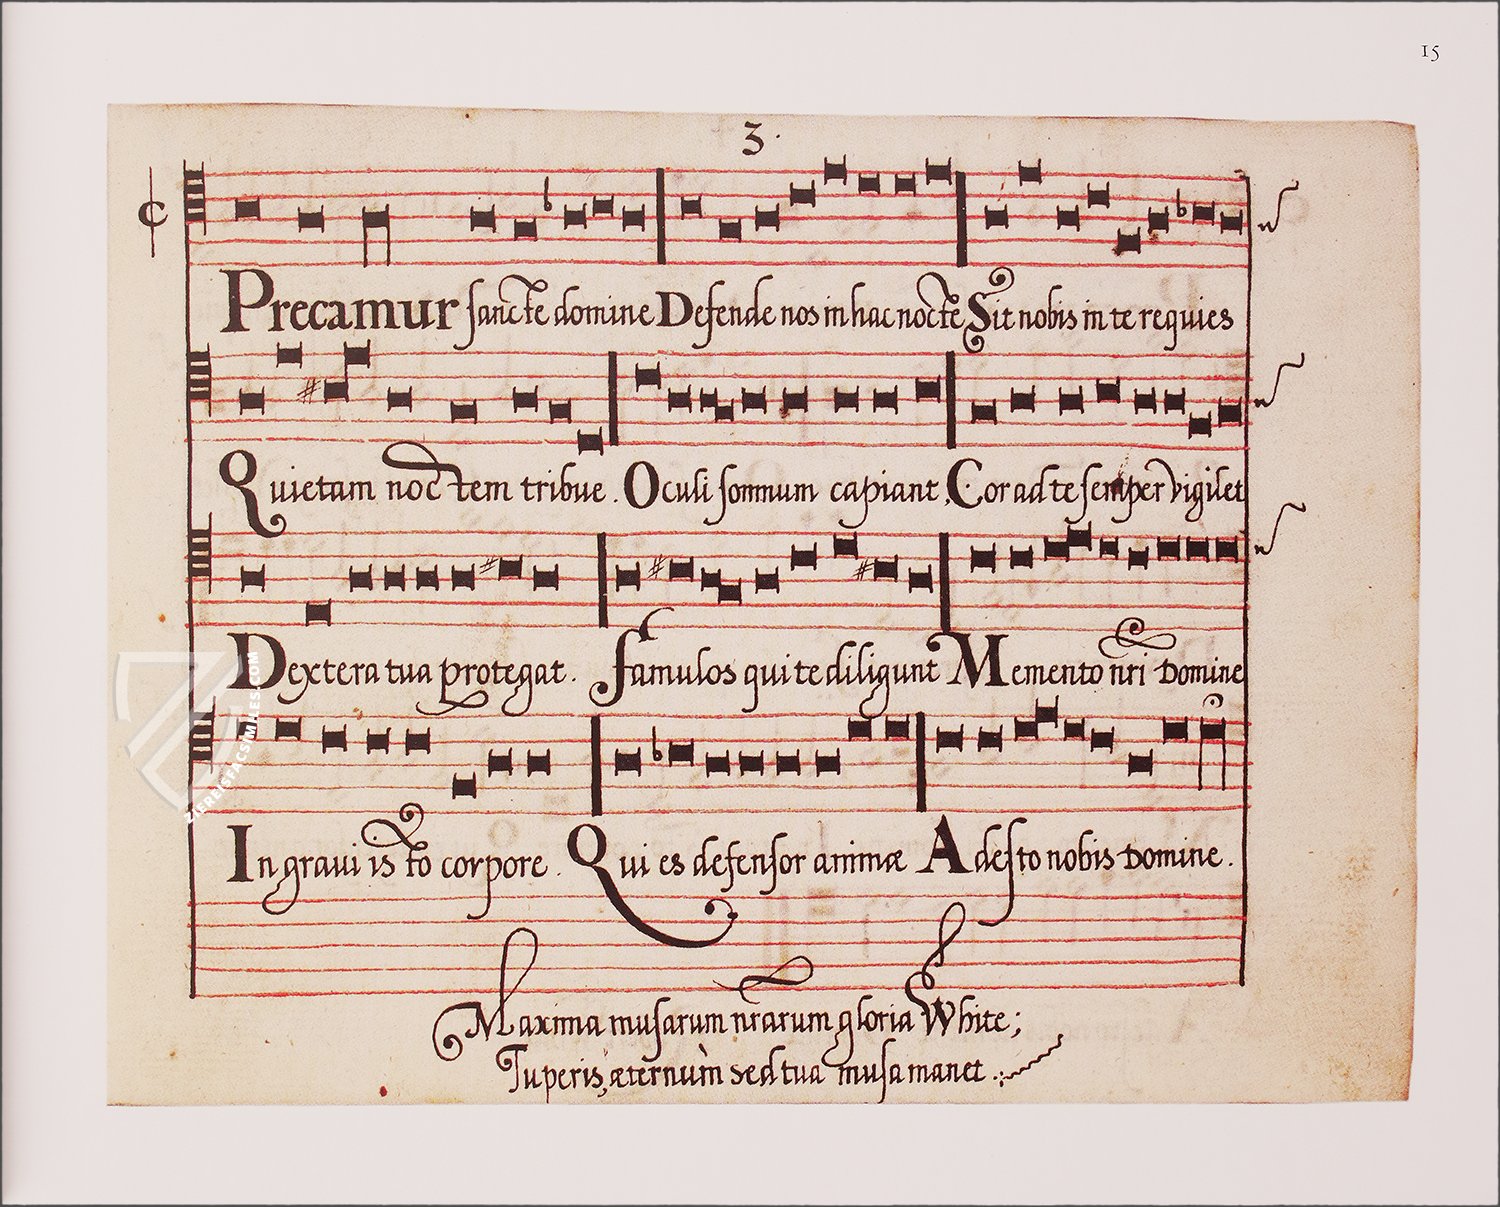 15
3.
Precamur sancte domine Defende nos in hac nocte Sit nobis in te requies
Quietam noctem tribue. Oculi somnum capiant, Cor ad te semper vigilet
Dextera tua protegat. famulos qui te diligunt Memento nri Domine
In gravi isto corpore. Qui es defensor animæ Adesto nobis Domine.
Maxima musarum nrarum gloria White;
Tu peris, æternùm sed tua musa manet.
ZIEREISFACSIMILES.COM